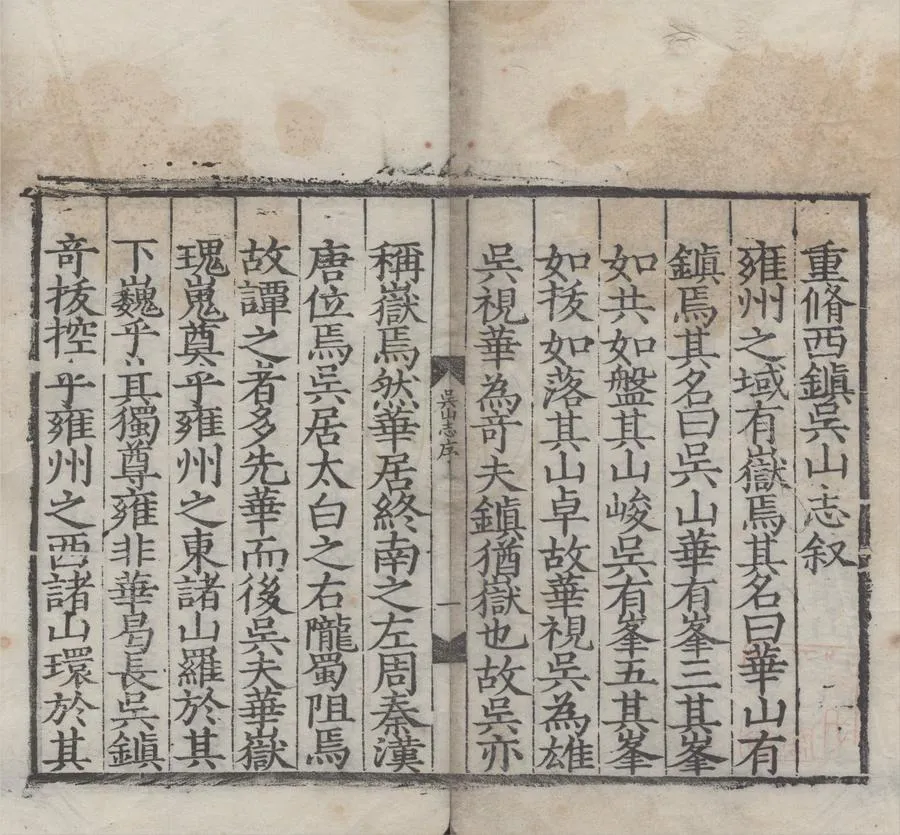 重脩西鎮吳山志叙
雍州之域有嶽焉其名曰華山有
鎮焉其名曰吳山華有峯三其峯
如共如盤其山峻吳有峯五其峯
如拔如落其山卓故華視吳為雄
吳視華為竒夫鎮猶嶽也故吳亦
吳山志序
一
稱嶽焉然華居終南之左周秦漢
唐位焉吳居太白之右隴蜀阻焉
故譚之者多先華而後吳夫華嶽
瑰嵬奠乎雍州之東諸山羅於其
下巍乎其獨尊雍非華曷長吳鎮
竒拔控乎雍州之西諸山環於其